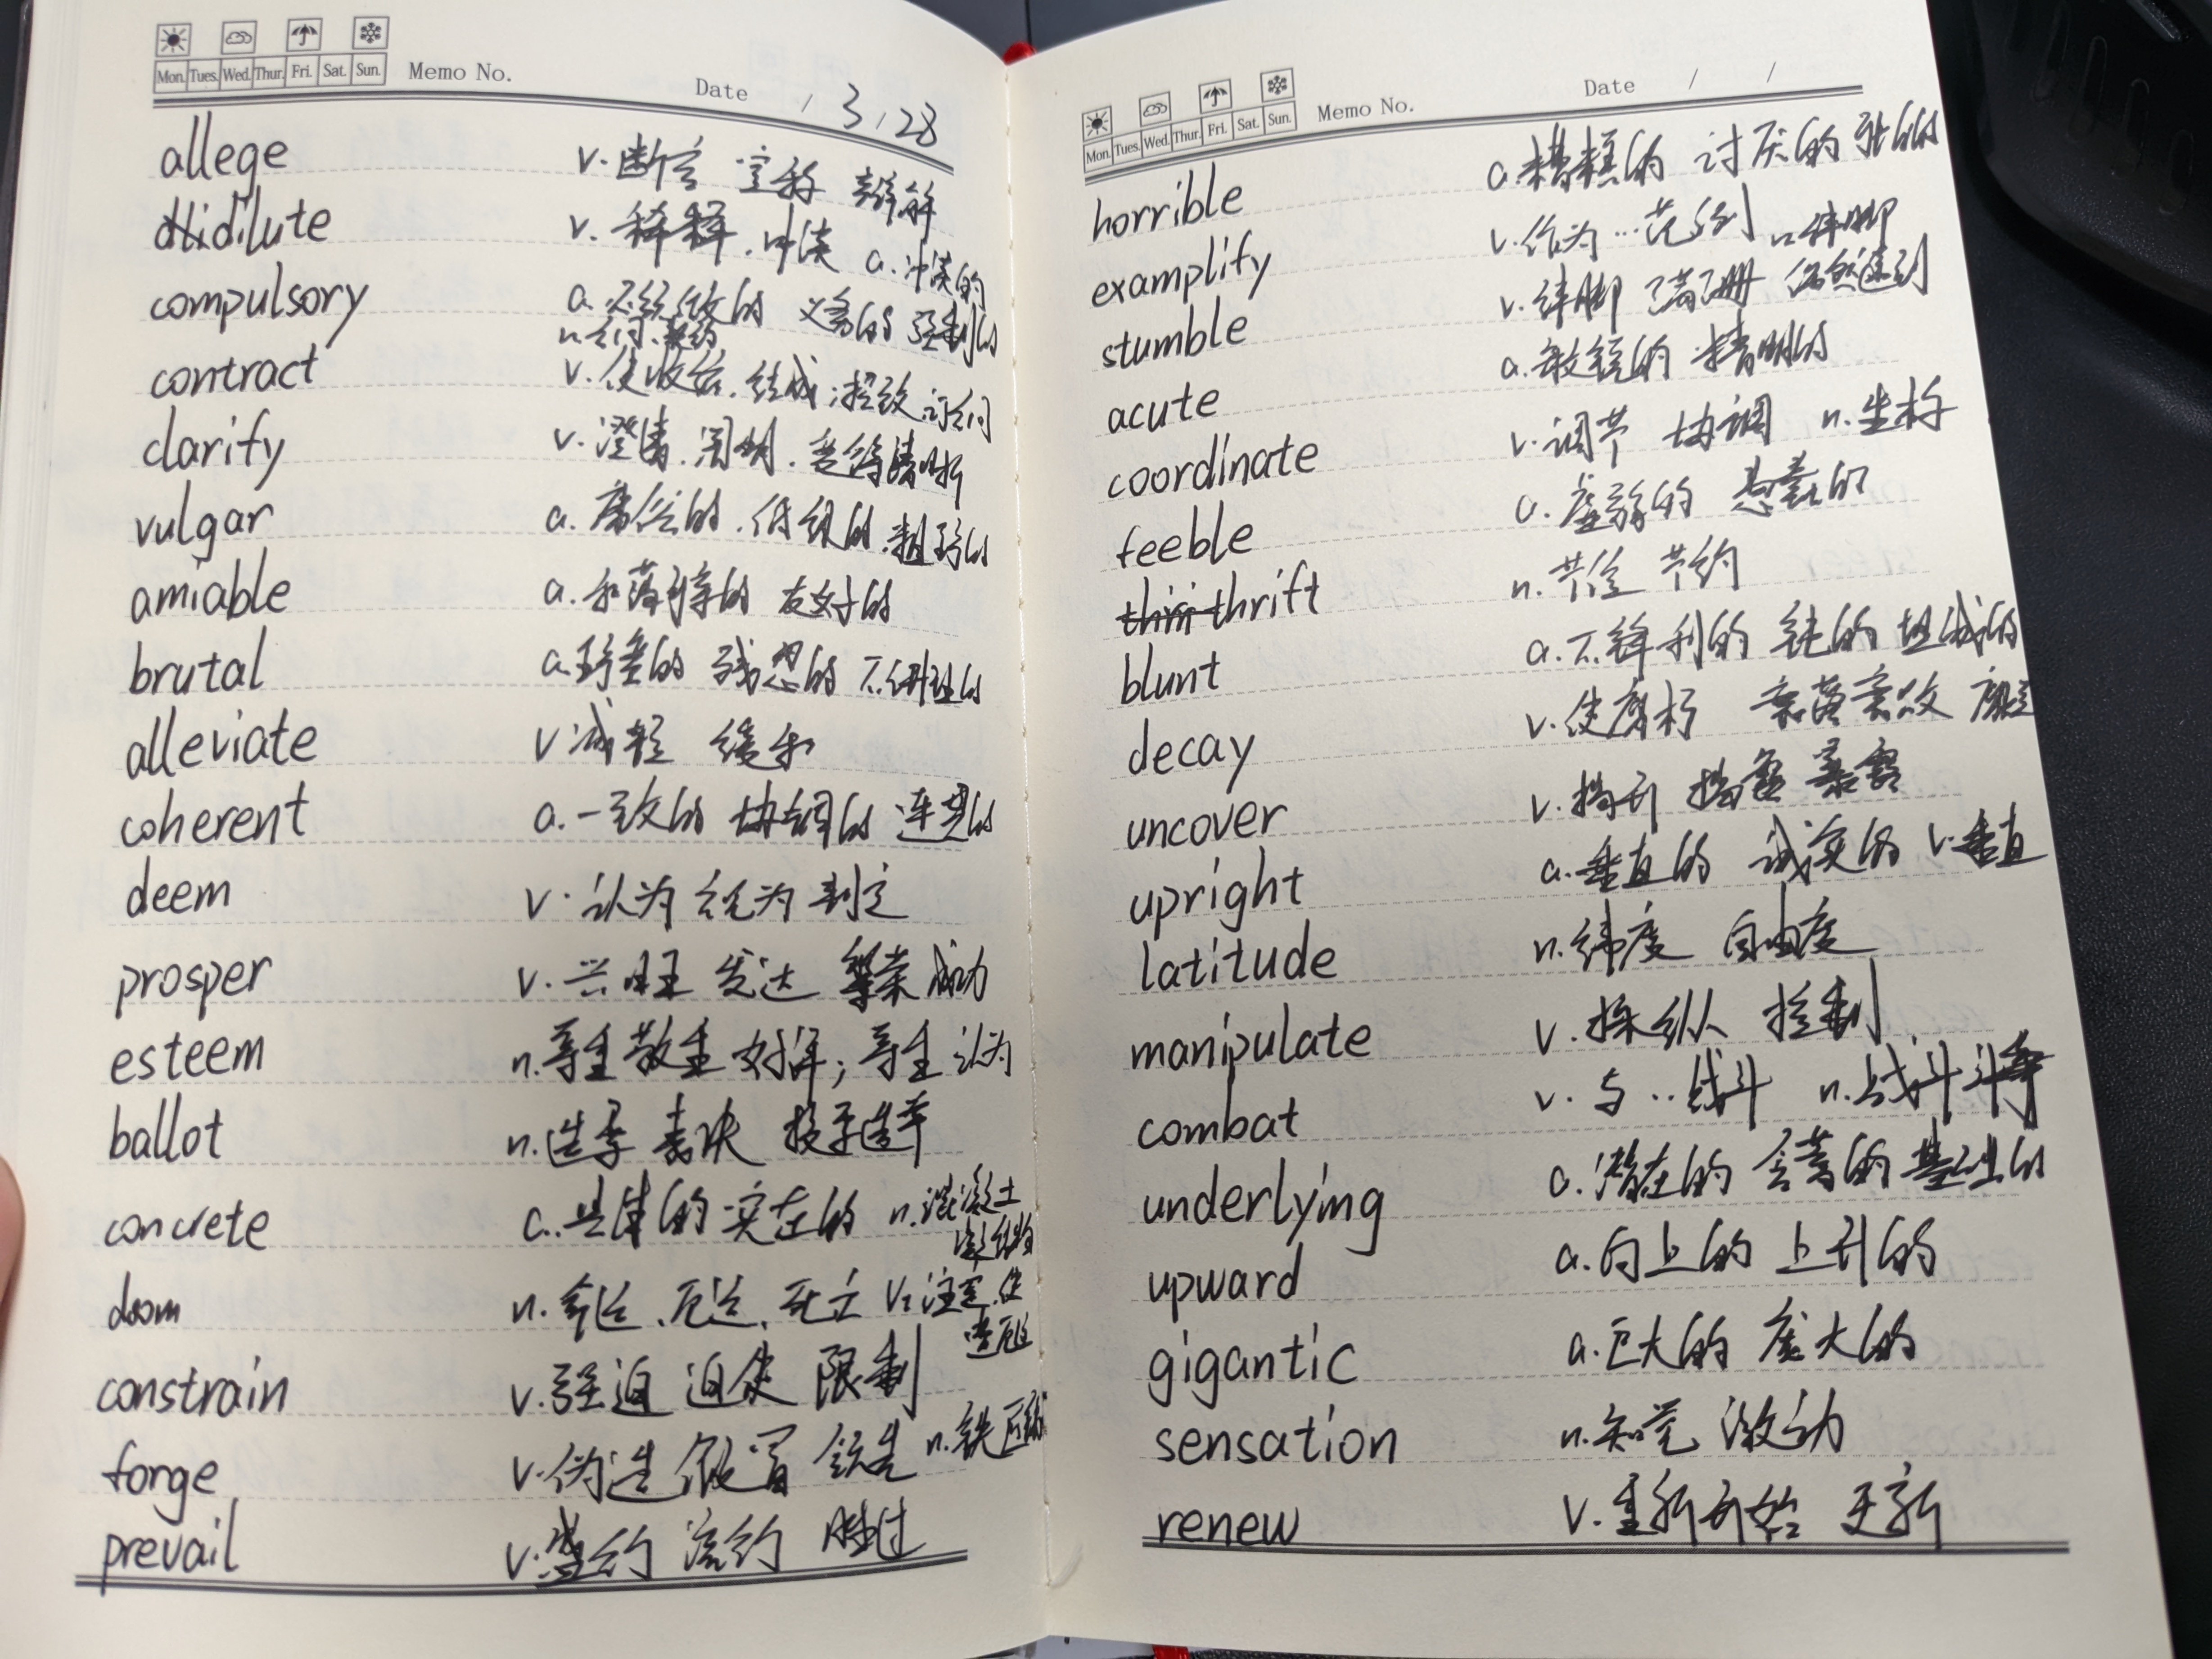 Mon. Tues. Wed. Thur. Fri. Sat. Sun. Memo No. Date / 3 / 28
allege v. 断言 宣称 辩解
dilute v. 稀释. 冲淡 a. 冲淡的
compulsory a. 必须做的 义务的 强制的
n. 合同. 契约
contract v. 使收缩. 结成; 招致. 订合同
clarify v. 澄清. 阐明. 变得清晰
vulgar a. 庸俗的. 低级的. 粗野的
amiable a. 和蔼可亲的 友好的
brutal a. 野蛮的 残忍的 不讲理的
alleviate v 减轻 缓和
coherent a. 一致的 协调的 连贯的
deem v. 认为 视为 判定
prosper v. 兴旺 发达 繁荣 成功
esteem n. 尊重 敬重 好评; 尊重 认为
ballot n. 选票 表决 投票选举
concrete a. 具体的 实在的 n. 混凝土
凝结物
doom n. 命运. 厄运. 死亡 v. 注定. 使
遭厄运
constrain v. 强迫 迫使 限制
forge v. 伪造 假冒 锻造 n. 铁匠铺
prevail v. 盛行 流行 胜过
Mon. Tues. Wed. Thur. Fri. Sat. Sun. Memo No. Date / /
horrible a. 糟糕的 讨厌的 可怕的
examplify v. 作为…范例 n. 绊脚
stumble v. 绊脚 蹒跚 偶然遇到
acute a. 敏锐的 精明的
coordinate v. 调节 协调 n. 坐标
feeble a. 虚弱的 愚蠢的
thrift n. 节俭 节约
blunt a. 不锋利的 钝的 坦诚的
decay v. 使腐朽 衰落 衰败
uncover v. 揭开 揭露 暴露
upright a. 垂直的 诚实的 v. 垂直
latitude n. 纬度 自由度
manipulate v. 操纵 控制
combat v. 与..战斗 n. 战斗 斗争
underlying a. 潜在的 含蓄的 基础的
upward a. 向上的 上升的
gigantic a. 巨大的 庞大的
sensation n. 知觉 激动
renew v. 重新开始 更新